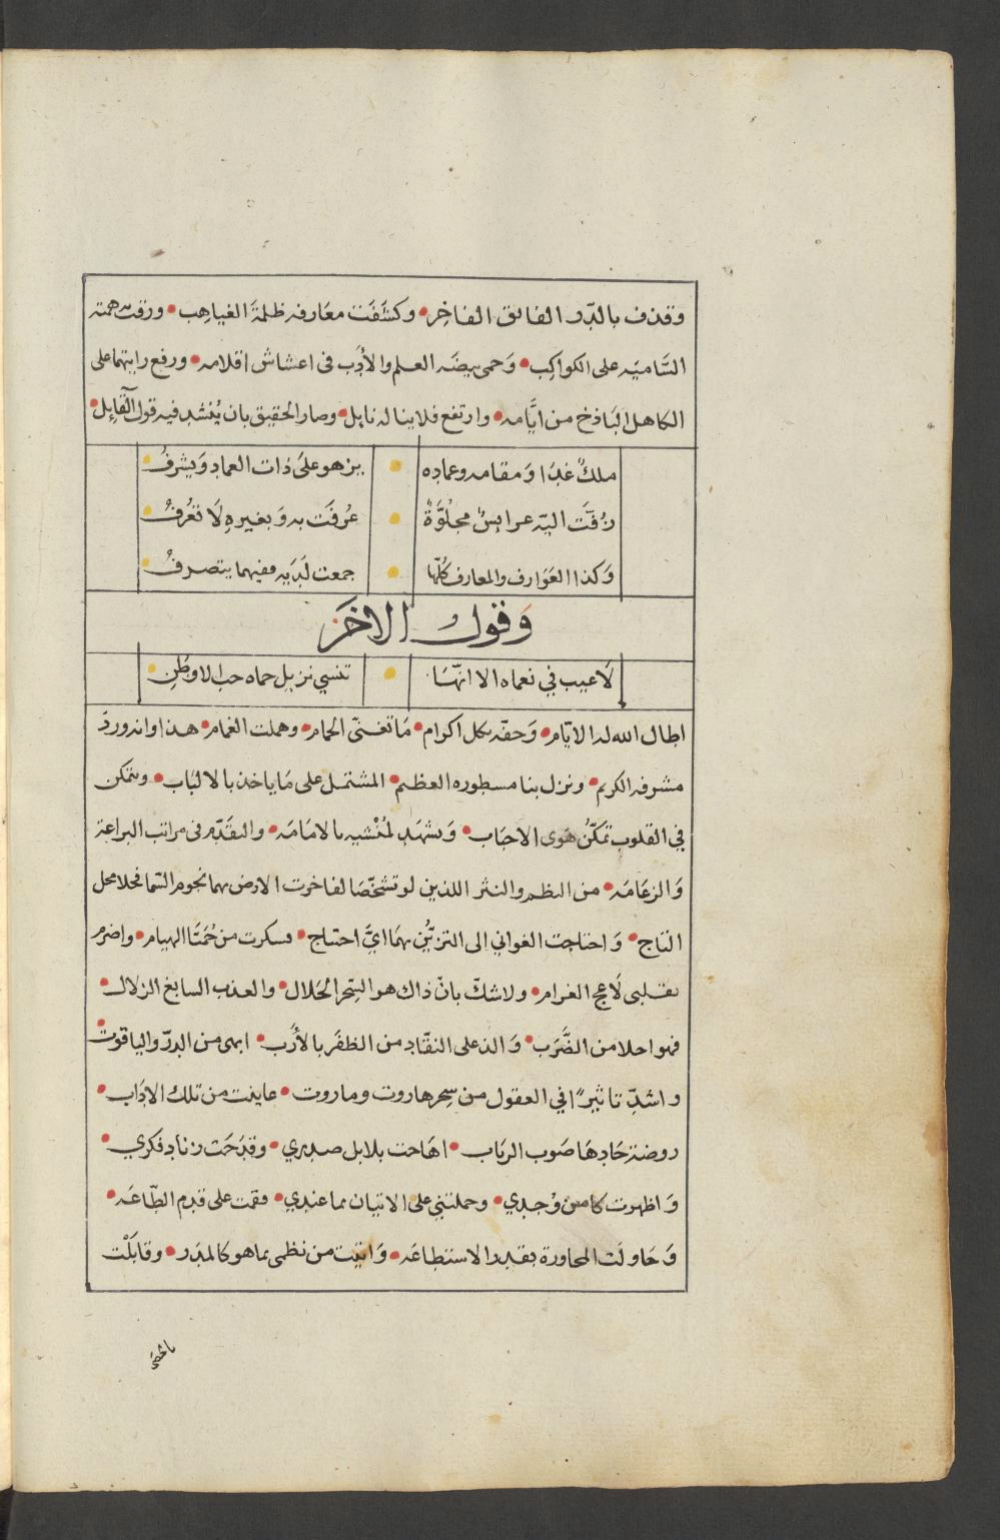 وقذف بالدّر الفائق الفاخِر • وكشَفَت معَارفه ظلمةَ الغياهِب • ورقت همته
السَّاميَه على الكواكِب • وَحمى بيضَه العلم والأدَب فى اعشاش اقلامه • ورفع رايتهما على
الكاهل البَاذخ من ايَّامه • وارتفع فلا يناله نايل • وصار الحقيق بان يُنْشد فيه قول القَايِل •
ملكٌ غدَا وَمقامه وعماده • يزهو علىَ ذات العماد وَيشرفُ
زُفَّت اليَه عرايسٌ مجلُوَّةٌ • عُرفَت به وَبغيرهِ لَا تعُرفُ
وَكذا العَوَارف والمعارف كُلّها • جمعت لَدَيه ففيهما يتصرفُ
وَقول الاخَر
لَا عيب في نعماه الا انهّا • تنسي نزيل حماه حب الاوطَنِ
اطال الله له الايّام • وَحفّه بكل اكرام • مَا تغنىّ الحمام • وهملت الغمام • هذا وانه وردَ
مشرفه الكريم • ونزل بنا مسطوره العظيم • المشتمل على مَا ياخذ بالالبَاب • ويتمكن
في القلوب تمكّنُ هَوى الاحبَاب • وَيشهَد لمُنْشيه بالامَامَه • والتقَدّم فى مراتب البراعة
وَالزعَامَه • من النظم والنثر اللذين لو تشخّصَا لفاخرت الارض بهما نجوم السّما فحلا محل
التاج • وَاحتاجت الغواني إلى التزيُّن بهمَا ايَّ احتياج • فسكرت من حُمَيَّا الهيام • واضرم
بقلبى لَاعج الغرام • ولا شكّ بانّ ذاك هو السِّحر الحَلال • والعذب السايغ الزلال •
فهو احلا من الضَّرَب • وَالذ على النقّاد من الظفَر بالأرَب • ابهى من الدرّ والياقوت •
واشدّ تاثيرًا في العقول من سِحر هاروت وماروت • عاينت من تلك الادَاب •
روضة جَادهَا صَوب الربَاب • اهَاجت بلابل صدري • وقدَحَت زناد فكري •
وَاظهرت كامن وَجدي • وحملتني على الاتيان مما عندي • فقمت على قدم الطّاعَه •
وَحَاولَت المحاورة بقدر الاستطاعَه • وَاتيت من نظمى بما هو كالمدَر • وقابَلْت